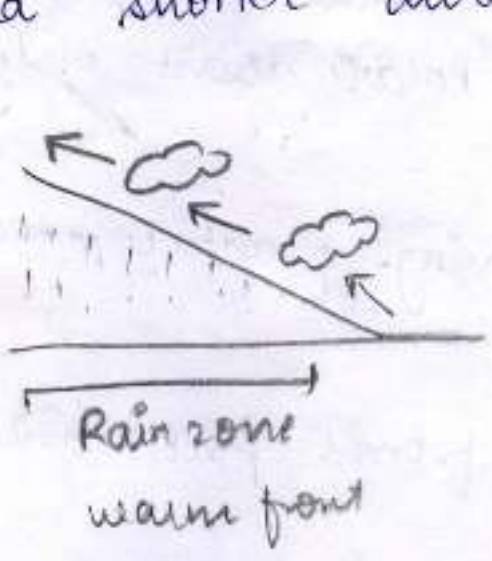 a shorter
Rain zone
warm front